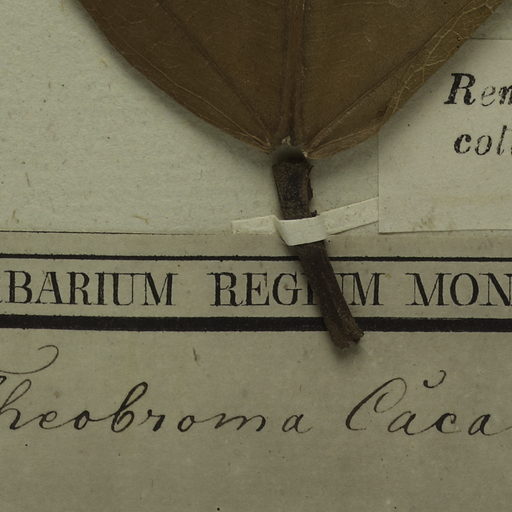 Ren
coll
RBARIUM REGIUM MON
Theobroma Căca